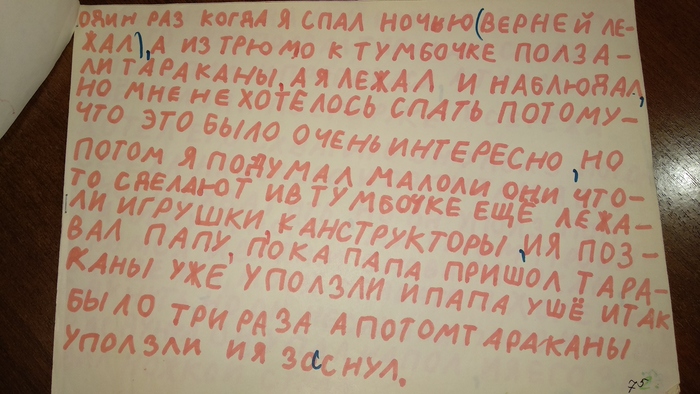 ОДИН РАЗ КОГДА Я СПАЛ НОЧЬЮ(ВЕРНЕЙ ЛЕ-
ЖАЛ), А ИЗ ТРЮМО К ТУМБОЧКЕ ПОЛЗА-
ЛИ ТАРАКАНЫ, А Я ЛЕЖАЛ И НАБЛЮДАЛ,
НО МНЕ НЕ ХОТЕЛОСЬ СПАТЬ ПОТОМУ-
ЧТО ЭТО БЫЛО ОЧЕНЬ ИНТЕРЕСНО, НО
ПОТОМ Я ПОДУМАЛ МАЛОЛИ ОНИ ЧТО-
ТО СДЕЛАЮТ ИВ ТУМБОЧКЕ ЕЩЁ ЛЕЖА-
ЛИ ИГРУШКИ, КАНСТРУКТОРЫ, ИЯ ПОЗ-
ВАЛ ПАПУ, ПОКА ПАПА ПРИШОЛ ТАРА-
КАНЫ УЖЕ УПОЛЗЛИ ИПАПА УШЁ ИТАК
БЫЛО ТРИ РАЗА А ПОТОМ ТАРАКАНЫ
УПОЛЗЛИ ИЯ ЗАСНУЛ.
75